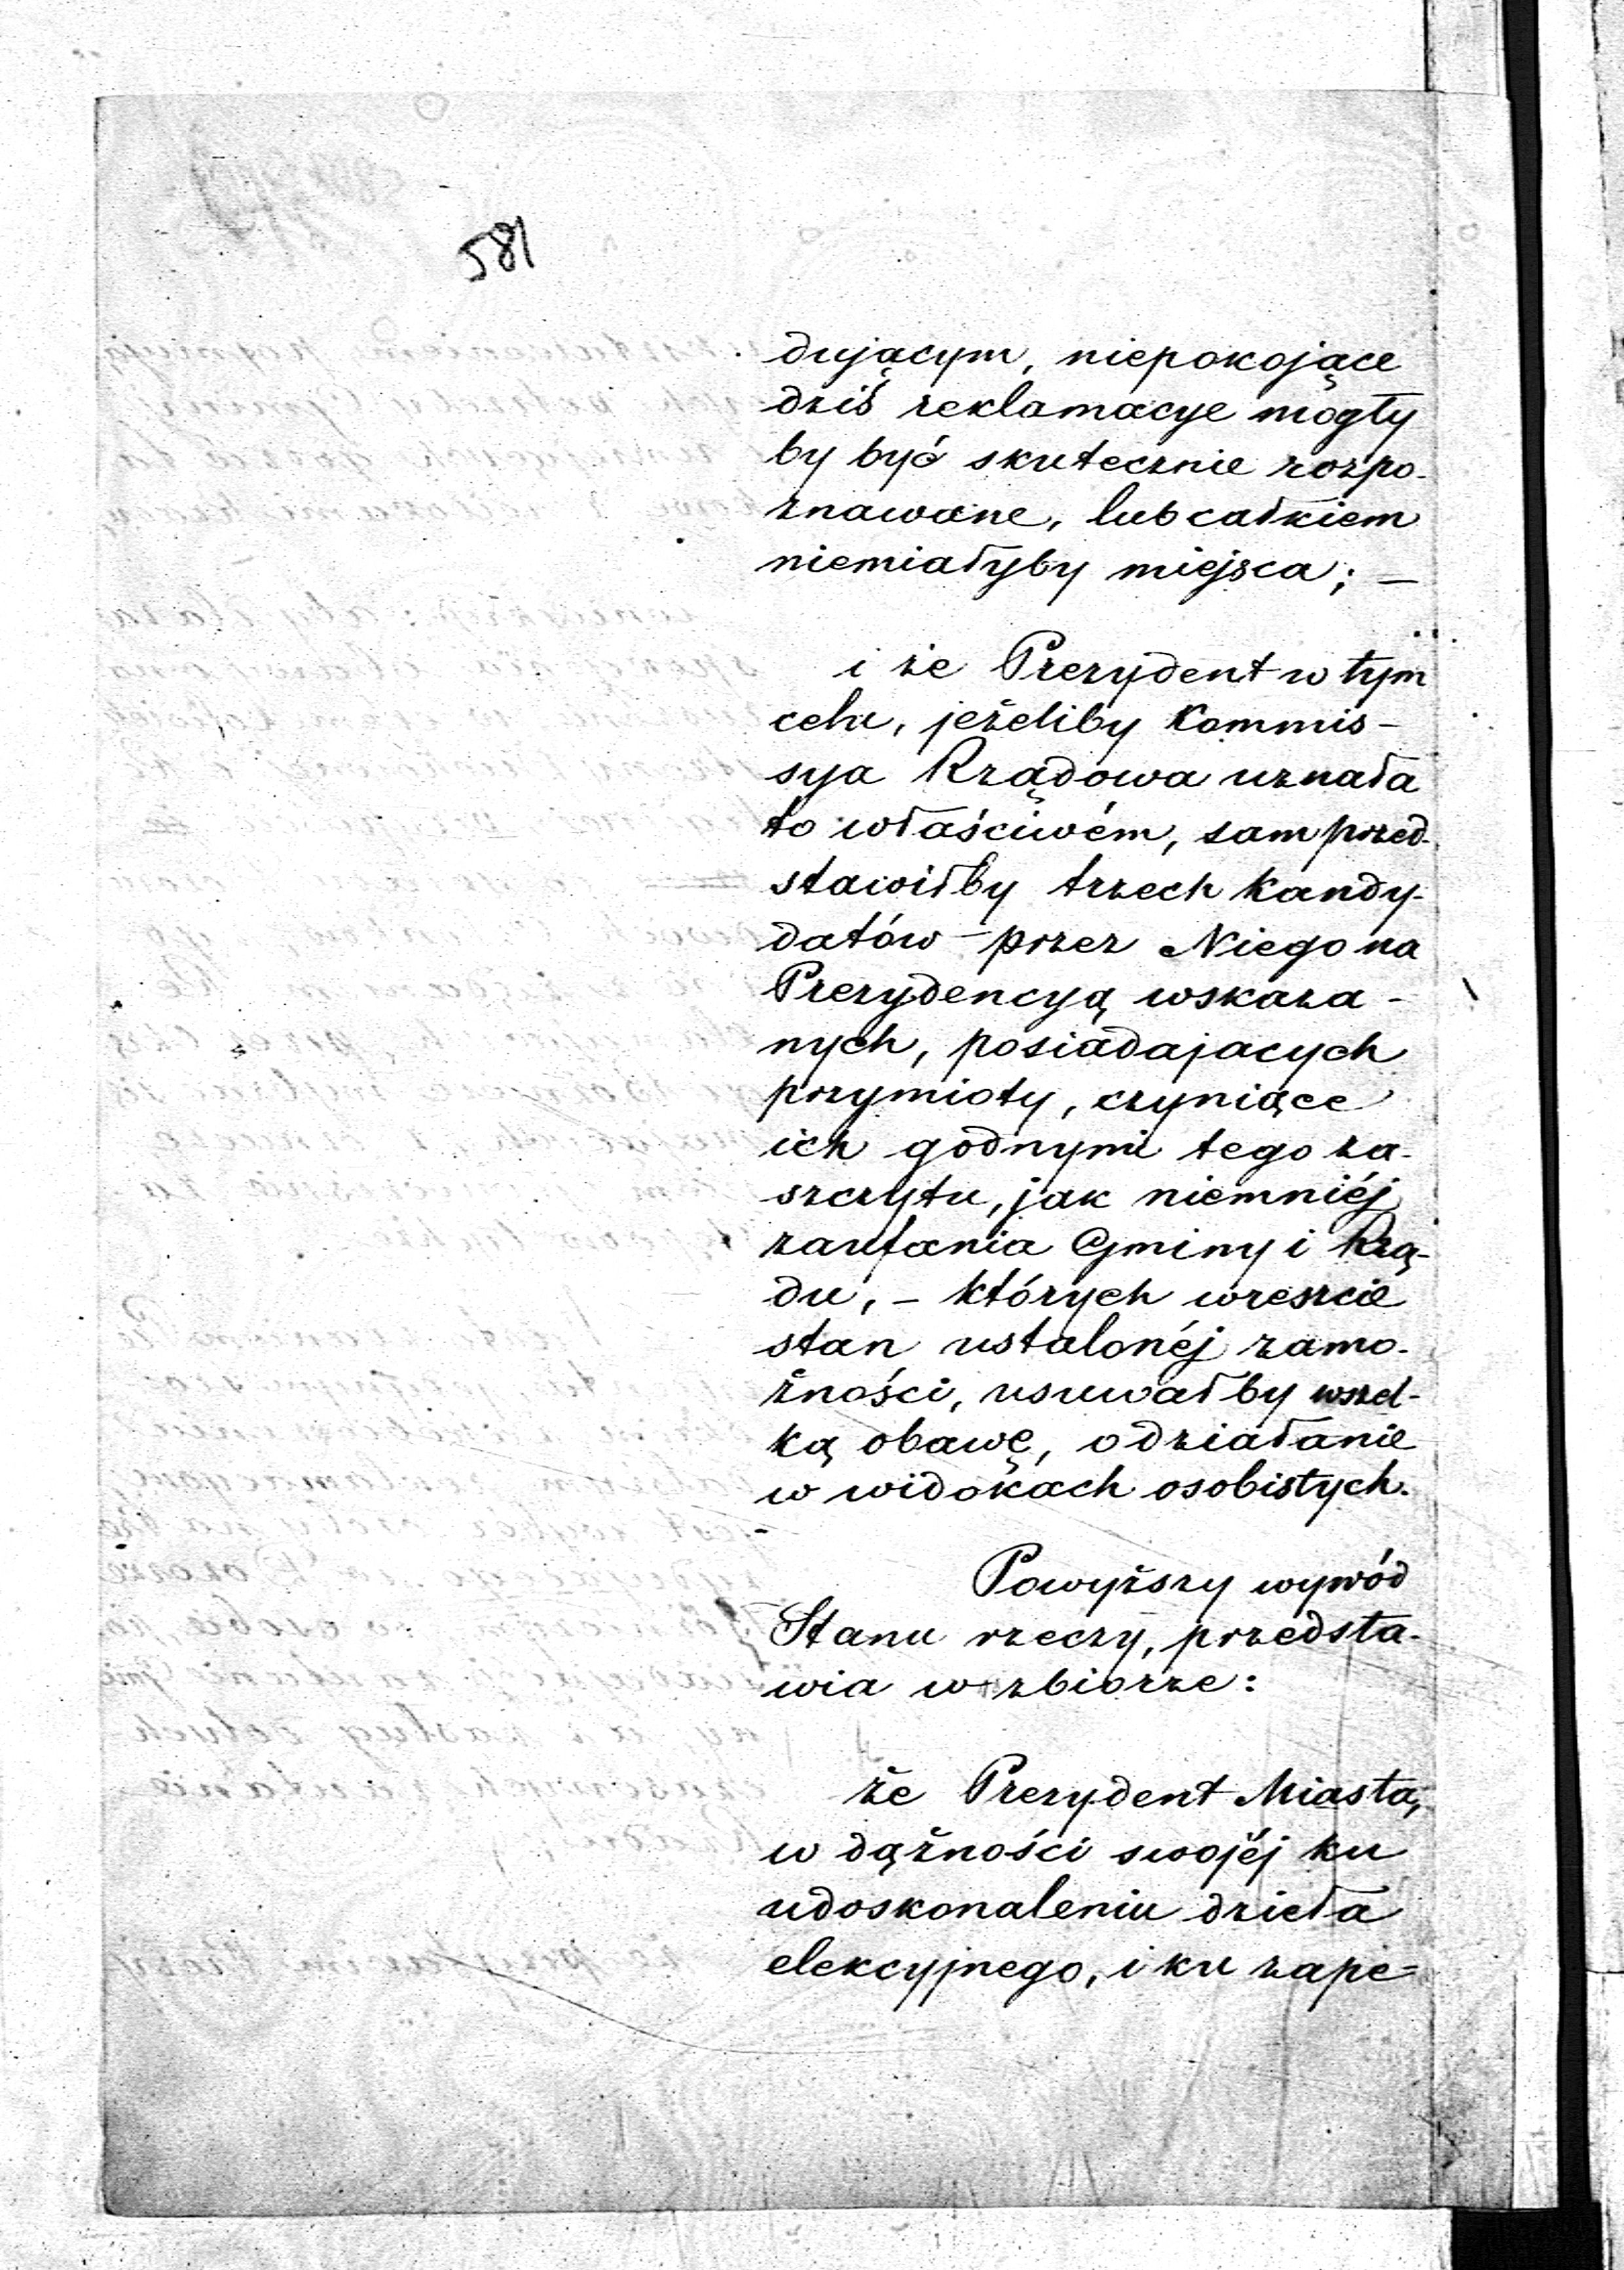 581
dującym, niepokojące
dziś reklamacye mogły
by być skutecznie rozpo-
znawane, lub całkiem
niemiałyby miejsca; —
i że Prezydent w tym
celu, jeżeliby Kommis-
sya Rządowa uznała
to właściwém, sam przed-
stawiłby trzech Kandy-
datów przez Niego na
Prezydencyą wskaza-
nych, posiadajacych
przymioty, czyniące
ich godnymi tego za-
szczytu, jak niemniéj
zaufania Gminy i Rzą-
du, – których wreszcie
stan ustalonéj zamo-
żności, usuwałby wszel-
ką obawę, o działanie
w widokach osobistych.
Powyższy wywód
Stanu rzeczy, przedsta-
wia w zbiorze:
że Prezydent Miasta,
w dążności swojéj ku
udoskonaleniu dzieła
elekcyjnego, i ku zape-